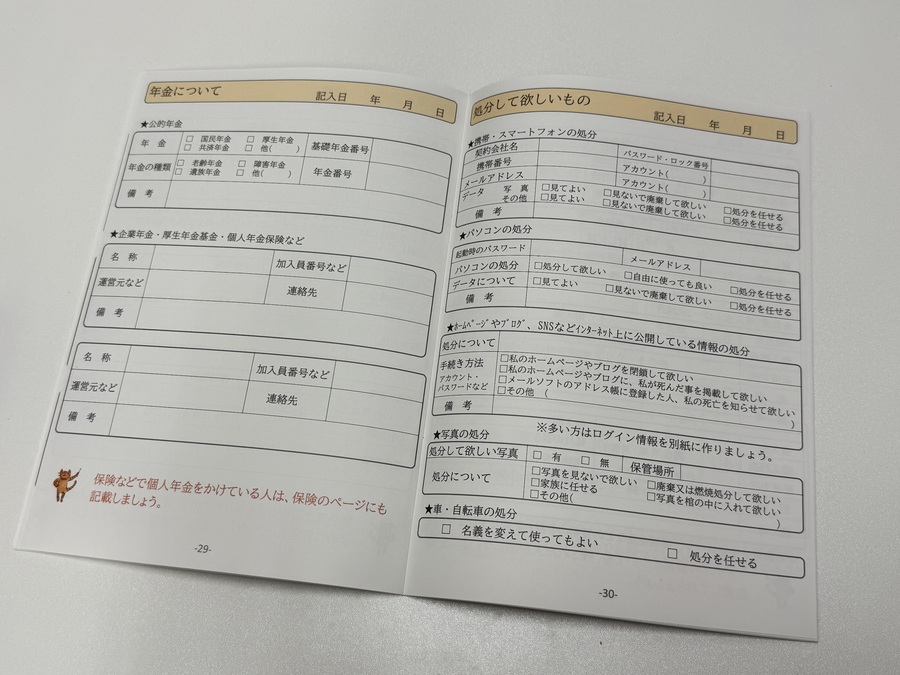 年金について
記入日　年　月　日
★公的年金
年　金　□ 国民年金　□ 厚生年金　基礎年金番号
□ 共済年金　□ 他(　　)
年金の種類　□ 老齢年金　□ 障害年金　年金番号
□ 遺族年金　□ 他(　　)
備　考
★企業年金・厚生年金基金・個人年金保険など
名　称　加入員番号など
運営元など　連絡先
備　考
名　称　加入員番号など
運営元など　連絡先
備　考
保険などで個人年金をかけている人は、保険のページにも
記載しましょう。
-29-
処分して欲しいもの
記入日　年　月　日
★携帯・スマートフォンの処分
契約会社名　パスワード・ロック番号
携帯番号　アカウント(　　)
メールアドレス　アカウント(　　)
データ　写　真　□見てよい　□見ないで廃棄して欲しい　□処分を任せる
その他　□見てよい　□見ないで廃棄して欲しい　□処分を任せる
備　考
★パソコンの処分
起動時のパスワード　メールアドレス
パソコンの処分　□処分して欲しい　□自由に使っても良い　□処分を任せる
データについて　□見てよい　□見ないで廃棄して欲しい　□処分を任せる
備　考
★ﾎｰﾑﾍﾟｰｼﾞやﾌﾞﾛｸﾞ、SNSなどｲﾝﾀｰﾈｯﾄ上に公開している情報の処分
処分について
手続き方法　□私のホームページやブログを閉鎖して欲しい
アカウント・　□私のホームページやブログに、私が死んだ事を掲載して欲しい
パスワードなど　□メールソフトのアドレス帳に登録した人、私の死亡を知らせて欲しい
□その他　(　　)
備　考
※多い方はログイン情報を別紙に作りましょう。
★写真の処分
処分して欲しい写真　□ 有　□ 無　保管場所
処分について　□写真を見ないで欲しい　□廃棄又は燃焼処分して欲しい
□家族に任せる　□写真を棺の中に入れて欲しい
□その他(　　)
★車・自転車の処分
□ 名義を変えて使ってもよい　□ 処分を任せる
-30-